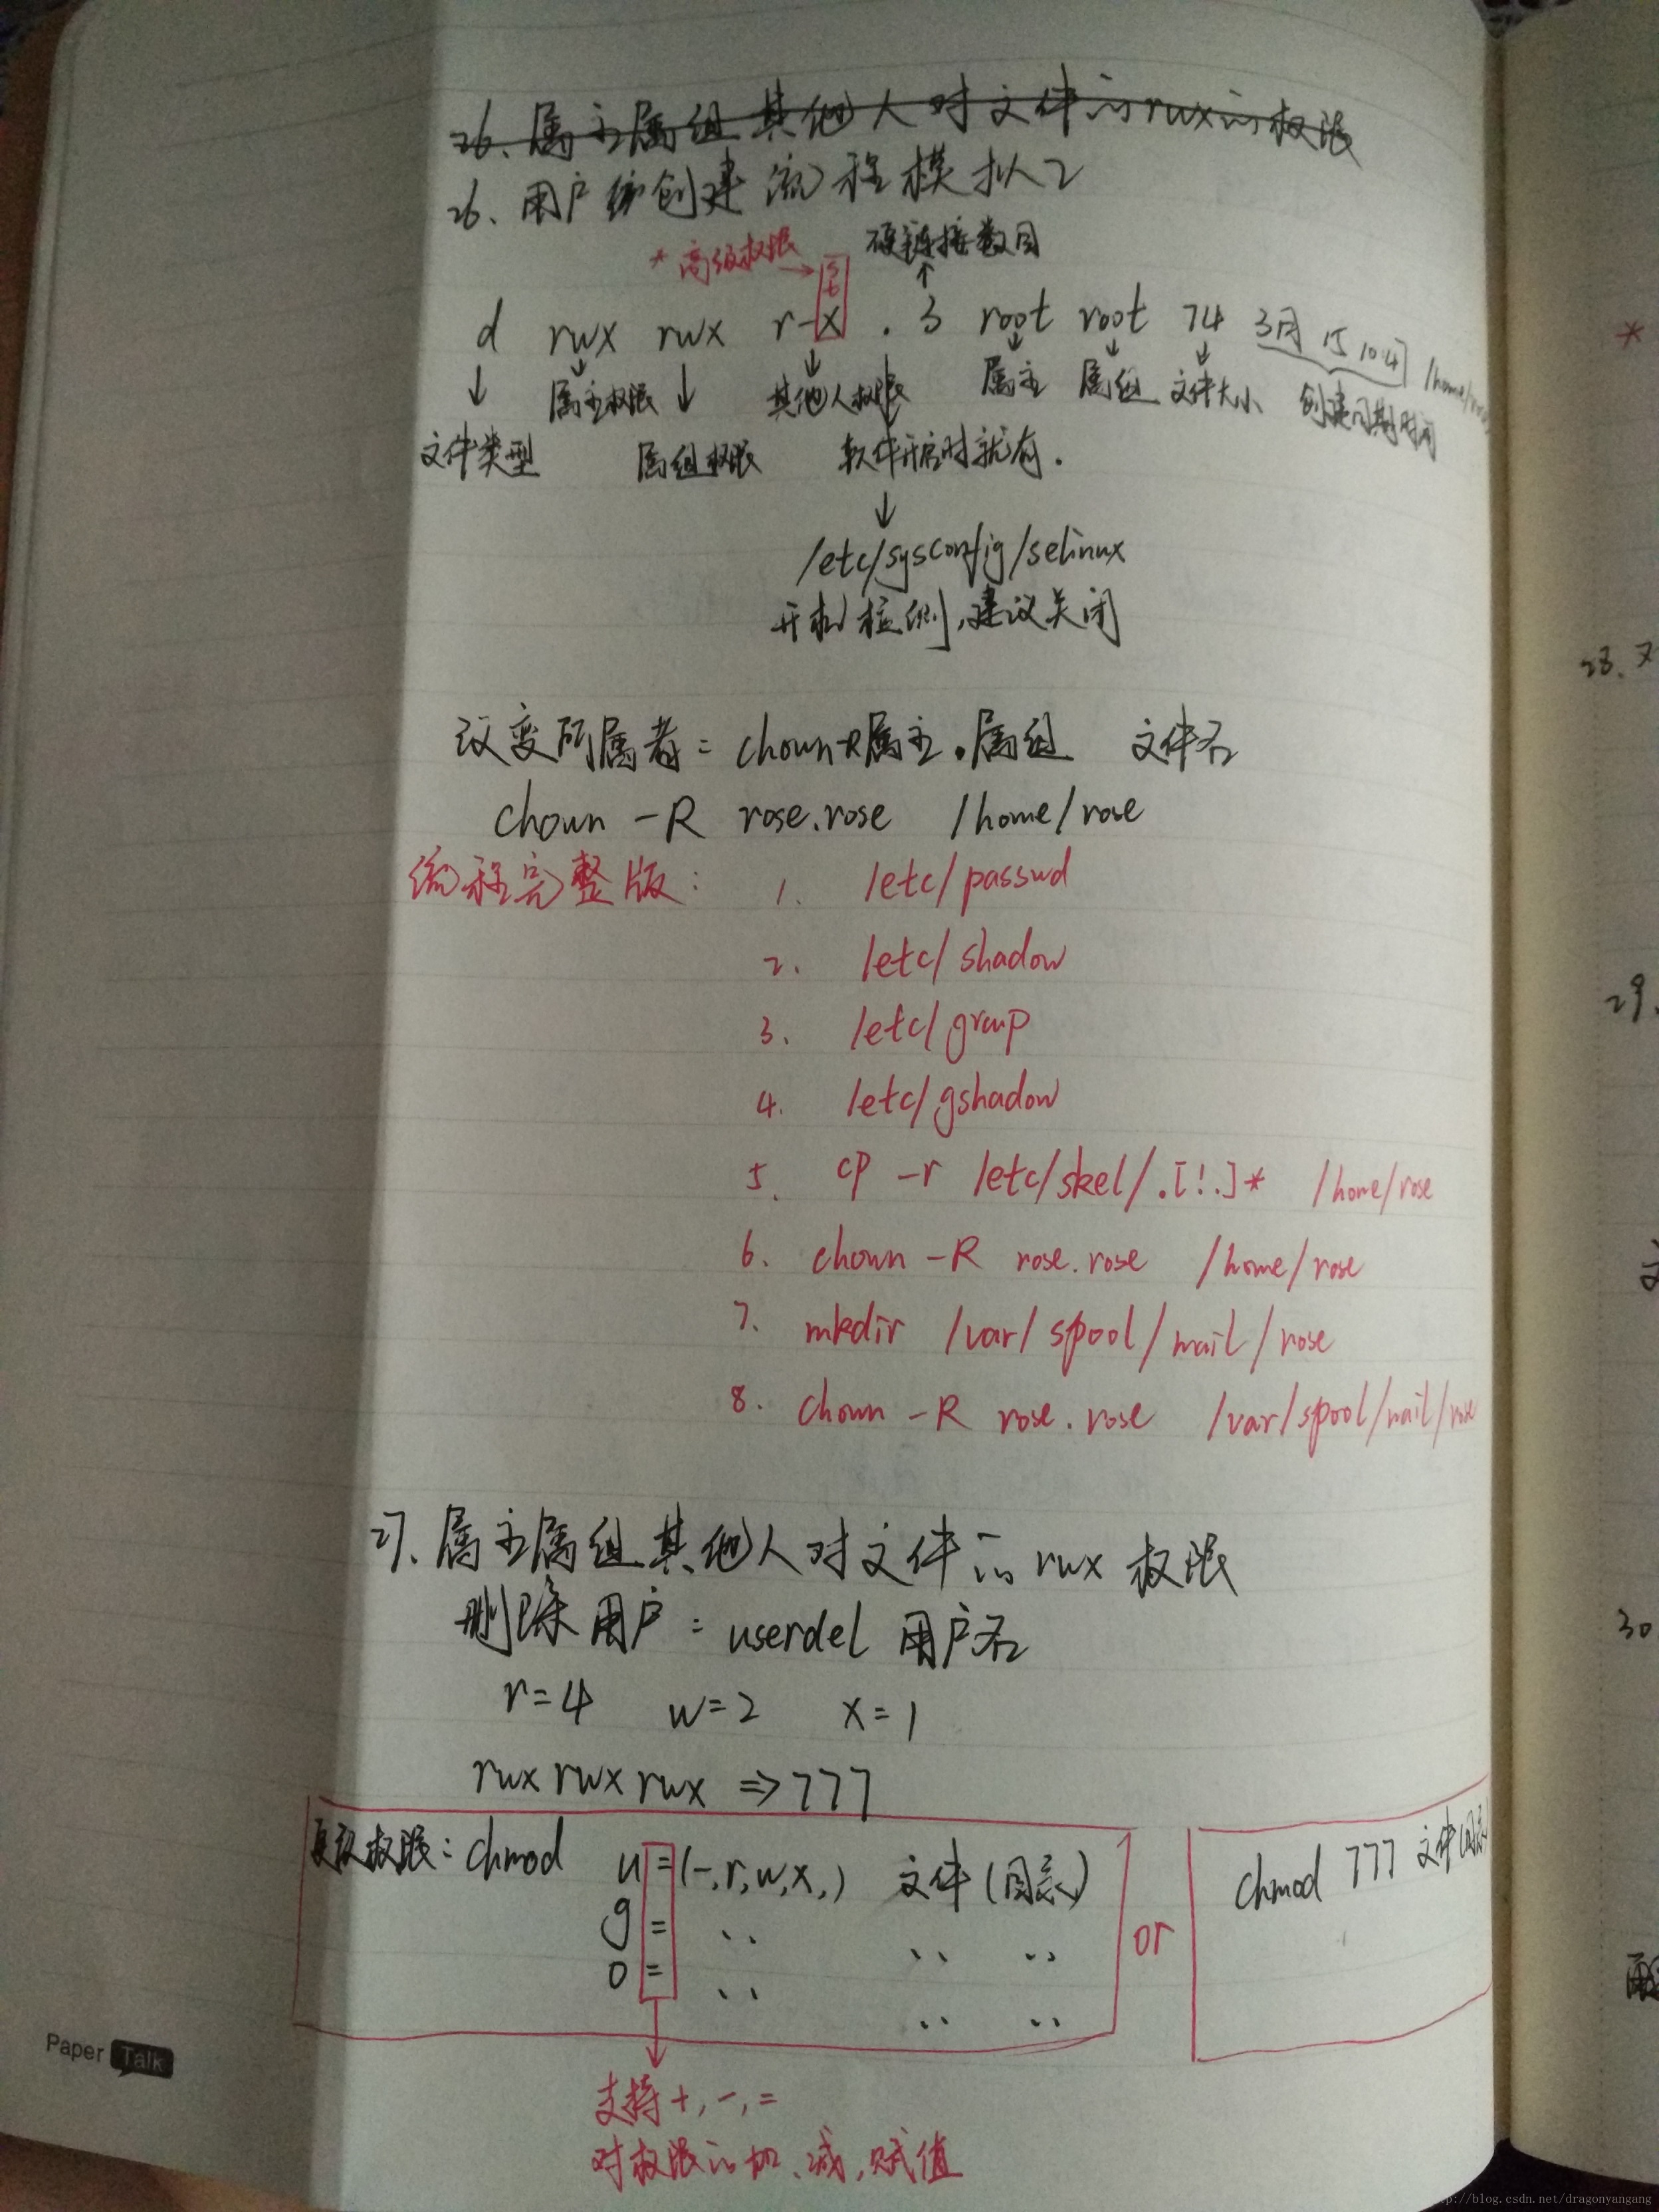 26、属主属组其他人对文件的rwx的权限
26、用户创建流程模拟2
*高级权限 → s t 硬链接数目
d rwx rwx r-x . 3 root root 74 3月 15 10:47 /home/rose
属主权限 其他人权限 属主 属组 文件大小 创建日期时间
文件类型 属组权限 软件开启时就有.
/etc/sysconfig/selinux
开机检测,建议关闭
改变所属者: chown -R 属主.属组 文件名
chown -R rose.rose /home/rose
流程完整版: 1. /etc/passwd
2. /etc/shadow
3. /etc/group
4. /etc/gshadow
5. cp -r /etc/skel/.[!.]* /home/rose
6. chown -R rose.rose /home/rose
7. mkdir /var/spool/mail/rose
8. chown -R rose.rose /var/spool/mail/rose
27、属主属组其他人对文件的rwx权限
删除用户: userdel 用户名
r=4 w=2 x=1
rwx rwx rwx => 777
更改权限: chmod u=(-,r,w,x,) 文件(目录)
g= 、、 、、 、、
o= 、、 、、 、、
or
chmod 777 文件(目录)
支持+,-,=
对权限的加、减,赋值
*
28、
29、
30
Paper Talk
http://blog.csdn.net/dragonyangang